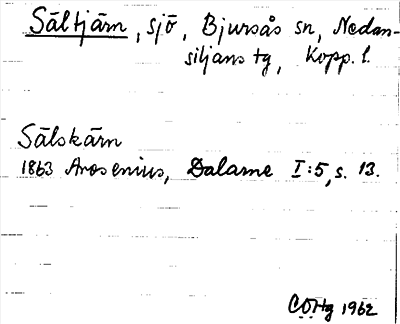 Sältjärn, sjö, Bjursås sn, Nedan-
siljans tg, Kopp. l.
Sälskärn
1863 Arosenius, Dalarne I:5, s. 13.
COHg 1962